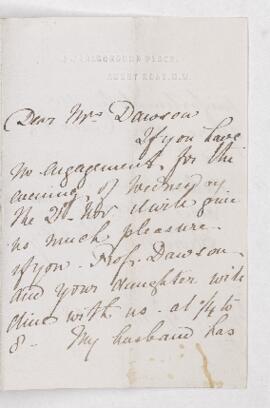 MARLBOROUGH PLACE,
ABBEY ROAD. N.W.
Dear Mrs Dawson
If you have
no engagement for the
evening of Wednesday
the 21st Nov. it will give
us much pleasure
if you. Profr. Dawson
and your daughter will
dine with us - at 1/4 to
8 - My husband has